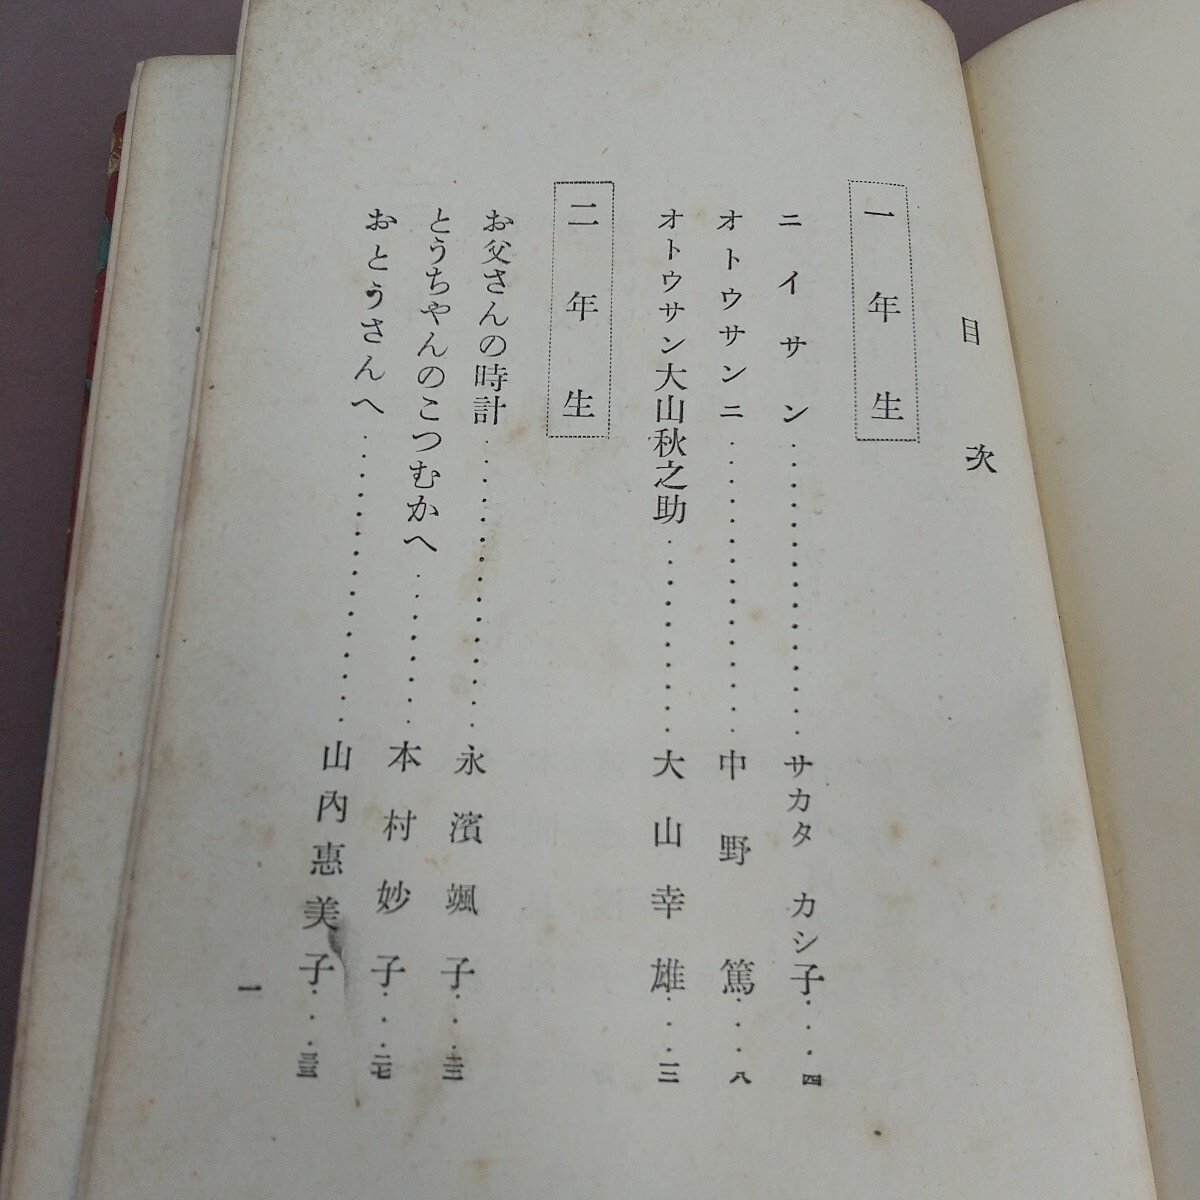 目次
一年生
ニイサン……………サカタ カシ子……四
オトウサンニ……………中野篤……八
オトウサン大山秋之助……………大山幸雄……一二
二年生
お父さんの時計……………永濱颯子……
とうちやんのこつむかへ……………本村妙子……二七
おとうさんへ……………山內惠美子……三三
一